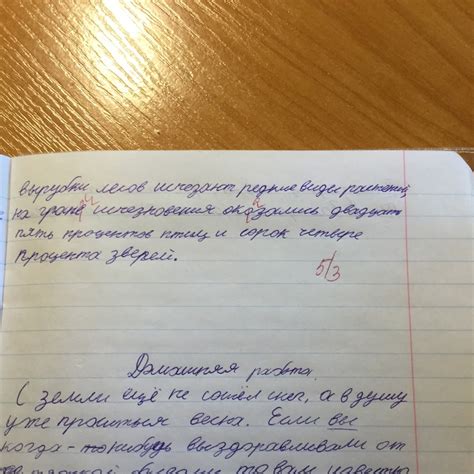 вырубки лесов исчезают редкие виды растений,
на гране исчезновения оказались двадцать
пять процентов птиц и сорок четыре
процента зверей.
5/3
Домашняя работа.
С земли ещё не сошёл снег, а в душу
уже просится весна. Если вы
когда-то нибудь выздоравливали от